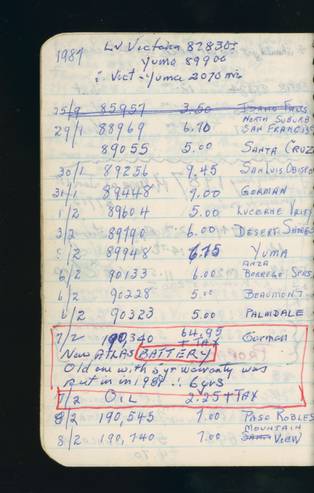 1987 Lv Victoria 87830
Yuma 89900
∴ Vict - Yuma 2070 mi
25/9 85957 3.60 IDAHO FALLS
NORTH SUBURB
29/1 88969 6.70 SAN FRANCISCO
89055 5.00 SANTA CRUZ
30/1 89256 9.45 SAN LUIS OBISPO
31/1 89448 9.00 GORMAN
1/2 89604 5.00 LUCERNE VALLEY
3/2 89790 6.00 DESERT SHORES
5/2 89948 6.75 YUMA
ANZA
6/2 90133 6.00 BORREGO SPRS
6/2 90228 5.00 BEAUMONT
6/2 90323 5.00 PALMDALE
7/2 190,340 64.95 Gorman
+ TAX
New ATLAS BATTERY
Old one with 5 yr warranty was
put in in 1981 ∴ 6 yrs
7/2 OIL 2.25 + TAX
8/2 190,545 7.00 PASO ROBLES
MOUNTAIN
8/2 190,740 7.00 VIEW